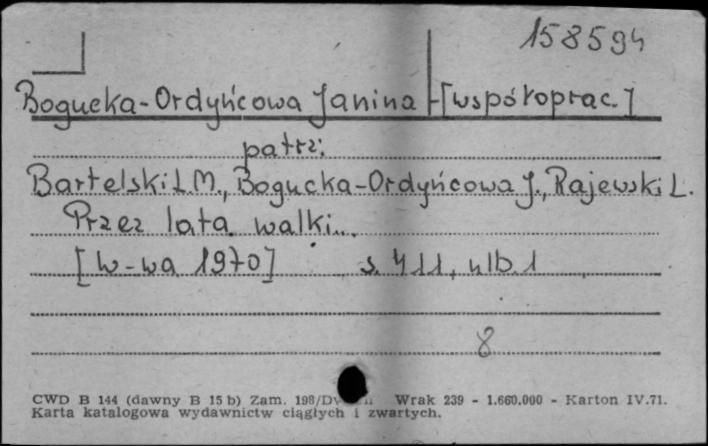 158594
Bogucka-Ordyńcowa Janina [współoprac.]
patrz:
Bartelski L.M., Bogucka-Ordyńcowa J., Rajewski L.
Przez lata walki...
[W-wa 1970] s. 411, nlb. 1
8
CWD B 144 (dawny B 15 b) Zam. 198/ Wrak 239 - 1.660.000 - Karton IV.71.
Karta katalogowa wydawnictw ciągłych i zwartych.